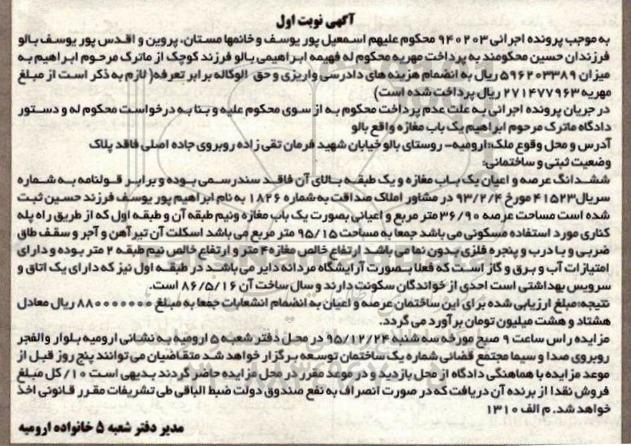 آگهی نوبت اول
به موجب پرونده اجرائی ۹۴۰۲۰۳ محکوم علیهم اسمعیل پور یوسف و خانمها مستان، پروین و اقدس پور یوسف بالو
فرزندان حسین محکومند به پرداخت مهریه محکوم له فهیمه ابراهیمی بالو فرزند کوچک از ماترک مرحوم ابراهیم به
میزان ۵۹۶۲۰۳۳۸۹ ریال به انضمام هزینه های دادرسی واریزی و حق الوکاله برابر تعرفه( لازم به ذکر است از مبلغ
مهریه ۲۷۱۴۷۷۹۶۳ ریال پرداخت شده است)
در جریان پرونده اجرائی به علت عدم پرداخت محکوم به از سوی محکوم علیه و بنا به درخواست محکوم له و دستور
دادگاه ماترک مرحوم ابراهیم یک باب مغازه واقع بالو
آدرس و محل وقوع ملک:ارومیه- روستای بالو خیابان شهید فرمان تقی زاده روبروی جاده اصلی فاقد پلاک
وضعیت ثبتی و ساختمانی:
ششدانگ عرصه و اعیان یک باب مغازه و یک طبقه بالای آن فاقد سند رسمی بوده و برابر قولنامه به شماره
سریال ۴۱۵۲۳ مورخ ۹۳/۲/۴ در مشاور املاک صداقت به شماره ۱۸۲۶ به نام ابراهیم پور یوسف فرزند حسین ثبت
شده است مساحت عرصه ۳۶/۹۰ متر مربع و اعیانی بصورت یک باب مغازه ونیم طبقه آن و طبقه اول که از طریق راه پله
کناری مورد استفاده مسکونی می باشد جمعا به مساحت ۹۵/۱۵ متر مربع می باشد اسکلت آن تیرآهن و آجر و سقف طاق
ضربی و با درب و پنجره فلزی بدون نما می باشد ارتفاع خالص مغازه ۴ متر و ارتفاع خالص نیم طبقه ۲ متر بوده و دارای
امتیازات آب و برق و گاز است که فعلا بصورت آرایشگاه مردانه دایر می باشد در طبقه اول نیز که دارای یک اتاق و
سرویس بهداشتی است احدی از خواندگان سکونت دارند و سال ساخت آن ۸۶/۵/۱۶ است.
نتیجه:مبلغ ارزیابی شده برای این ساختمان عرصه و اعیان به انضمام انشعابات جمعا به مبلغ ۸۸۰۰۰۰۰۰۰ ریال معادل
هشتاد و هشت میلیون تومان برآورد می گردد.
مزایده راس ساعت ۹ صبح مورخه سه شنبه ۹۵/۱۲/۲۴ در محل دفتر شعبه ۵ ارومیه به نشانی ارومیه بلوار والفجر
روبروی صدا و سیما مجتمع قضائی شماره یک ساختمان توسعه برگزار خواهد شد متقاضیان می توانند پنج روز قبل از
موعد مزایده با هماهنگی دادگاه از محل بازدید و در موعد مقرر در محل مزایده حاضر گردند بدیهی است ۱۰/ کل مبلغ
فروش نقدا از برنده آن دریافت که در صورت انصراف به نفع صندوق دولت ضبط الباقی طی تشریفات مقرر قانونی اخذ
خواهد شد. م الف ۱۳۱۰
مدیر دفتر شعبه ۵ خانواده ارومیه